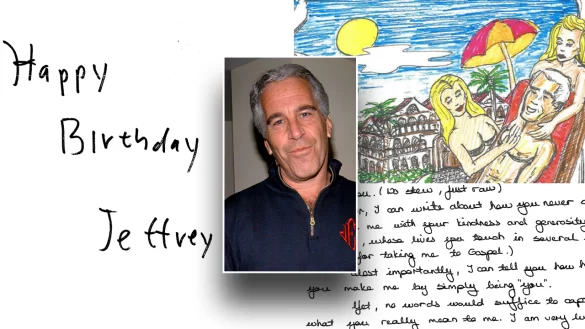 Happy
Birthday
Jeffrey
ou. (No stew, just raw)
, I can write about how you never
me with your kindness and generosity
, whose lives you touch in several
for taking me to Gospel.)
most importantly, I can tell you how
you make me by simply being "you".
Yet, no words would suffice to
what you really mean to me. I am very